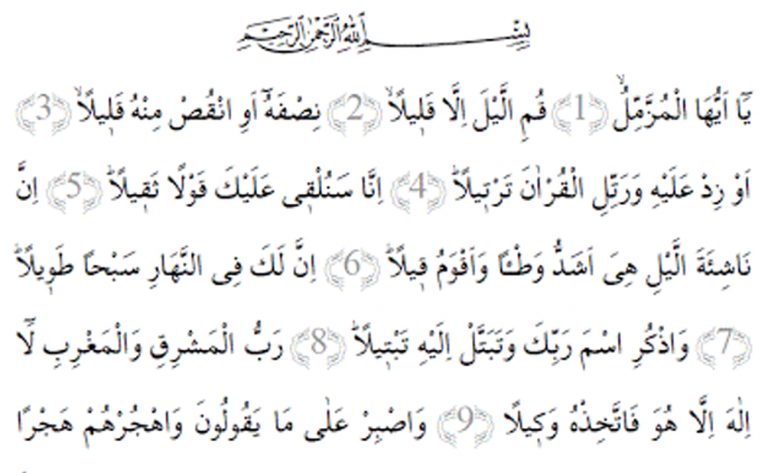 بِسْمِ اللّٰهِ الرَّحْمٰنِ الرَّحِيمِ
يَٓا اَيُّهَا الْمُزَّمِّلُۙ ﴿1﴾ قُمِ الَّيْلَ اِلَّا قَل۪يلًاۙ ﴿2﴾ نِصْفَهُٓ اَوِ انْقُصْ مِنْهُ قَل۪يلًاۙ ﴿3﴾
اَوْ زِدْ عَلَيْهِ وَرَتِّلِ الْقُرْاٰنَ تَرْت۪يلًاۜ ﴿4﴾ اِنَّا سَنُلْق۪ى عَلَيْكَ قَوْلًا ثَق۪يلًاۜ ﴿5﴾ اِنَّ
نَاشِئَةَ الَّيْلِ هِىَ اَشَدُّ وَطْـًٔا وَاَقْوَمُ ق۪يلًاۜ ﴿6﴾ اِنَّ لَكَ فِى النَّهَارِ سَبْحًا طَو۪يلًاۜ
﴿7﴾ وَاذْكُرِ اسْمَ رَبِّكَ وَتَبَتَّلْ اِلَيْهِ تَبْت۪يلًاۜ ﴿8﴾ رَبُّ الْمَشْرِقِ وَالْمَغْرِبِ لَٓا
اِلٰهَ اِلَّا هُوَ فَاتَّخِذْهُ وَك۪يلًا ﴿9﴾ وَاصْبِرْ عَلٰى مَا يَقُولُونَ وَاهْجُرْهُمْ هَجْرًا